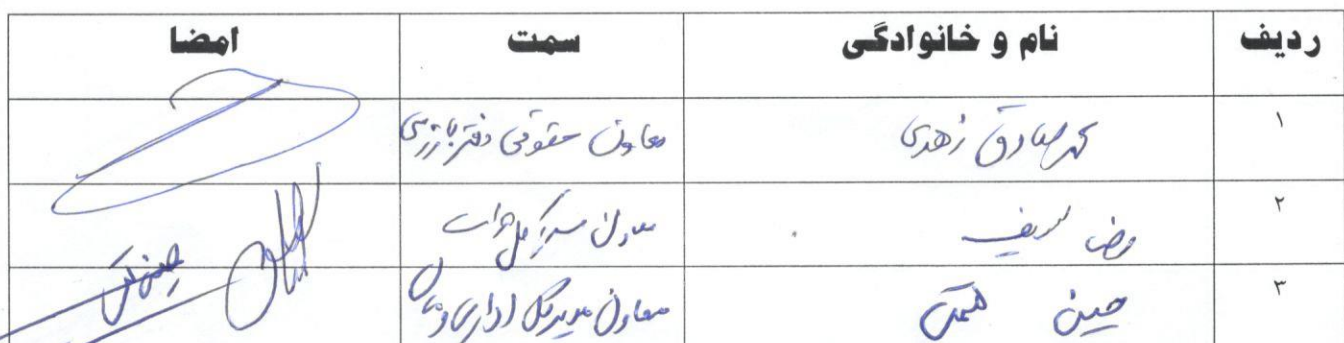 ردیف نام و خانوادگی سمت امضا
۱ محمد صادق زهدی معاون حقوقی دفتر بازرسی
۲ رضا سیف معاون
۳ حسین همتی معاون مدیرکل اداری و مالی